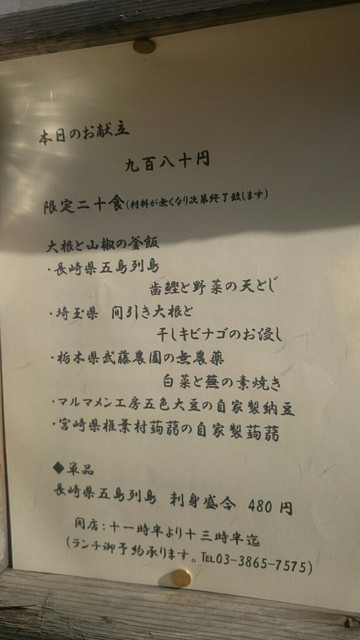 本日のお献立
九百八十円
限定二十食(材料が無くなり次第終了致します)
大根と山椒の釜飯
・長崎県五島列島
歯鰹と野菜の天とじ
・埼玉県 間引き大根と
干しキビナゴのお浸し
・栃木県武藤農園の無農薬
白菜と蕪の素焼き
・マルマメン工房五色大豆の自家製納豆
・宮崎県椎葉村蒟蒻の自家製蒟蒻
◆単品
長崎県五島列島 刺身盛合 480円
開店:十一時半より十三時半迄
(ランチ御予約承ります。TEL03-3865-7575)